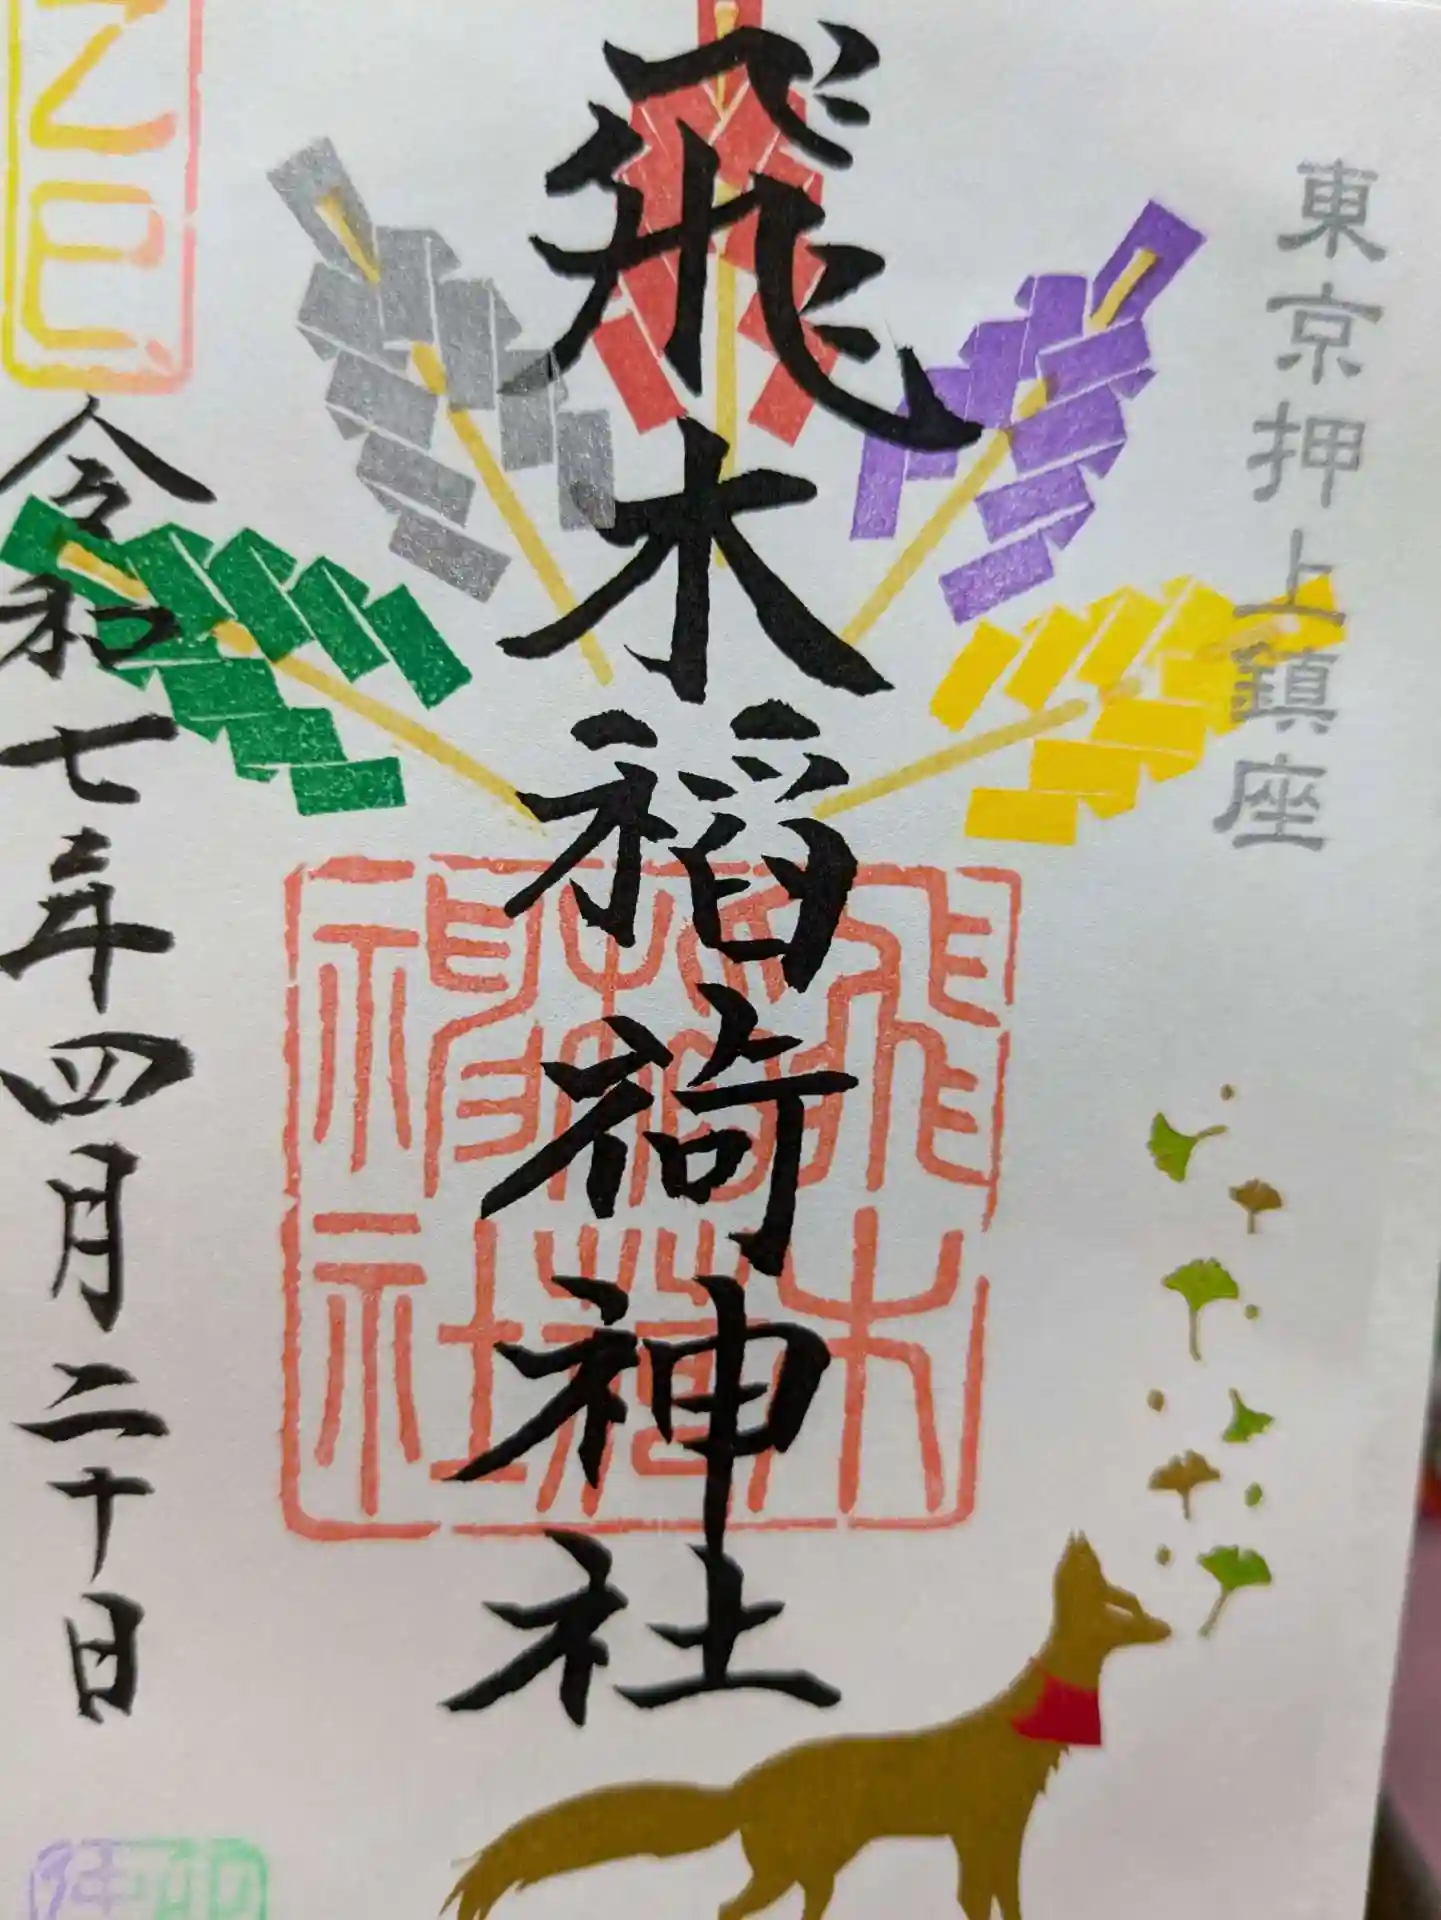 東京押上鎮座
飛木稲荷神社
飛木
稲荷
神社
乙巳
令和七年四月二十日